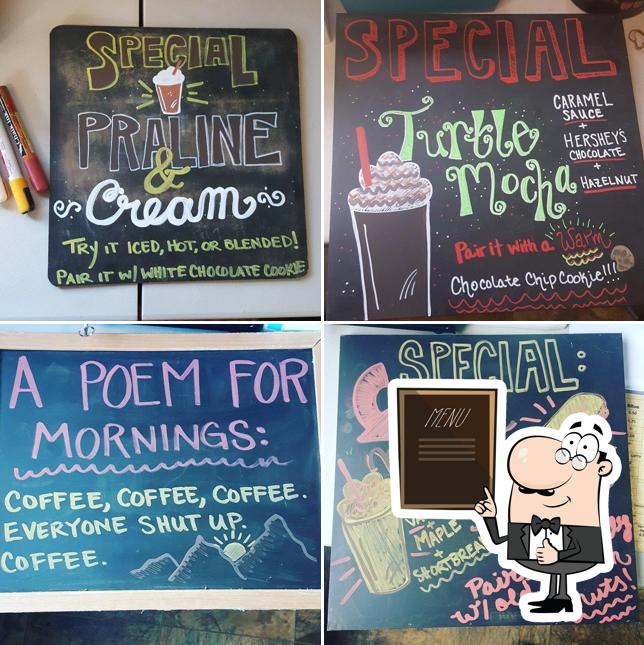 SPECIAL
PRALINE
&
Cream
TRY IT ICED, HOT, OR BLENDED!
PAIR IT W/ WHITE CHOCOLATE COOKIE
SPECIAL
Turtle
Mocha
CARAMEL
SAUCE
+
HERSHEY'S
CHOCOLATE
+
HAZELNUT
Pair it with a Warm
Chocolate Chip Cookie!!!
A POEM FOR
MORNINGS:
COFFEE, COFFEE, COFFEE.
EVERYONE SHUT UP.
COFFEE.
SPECIAL:
MENU
+
MAPLE
+
SHORTBREAD